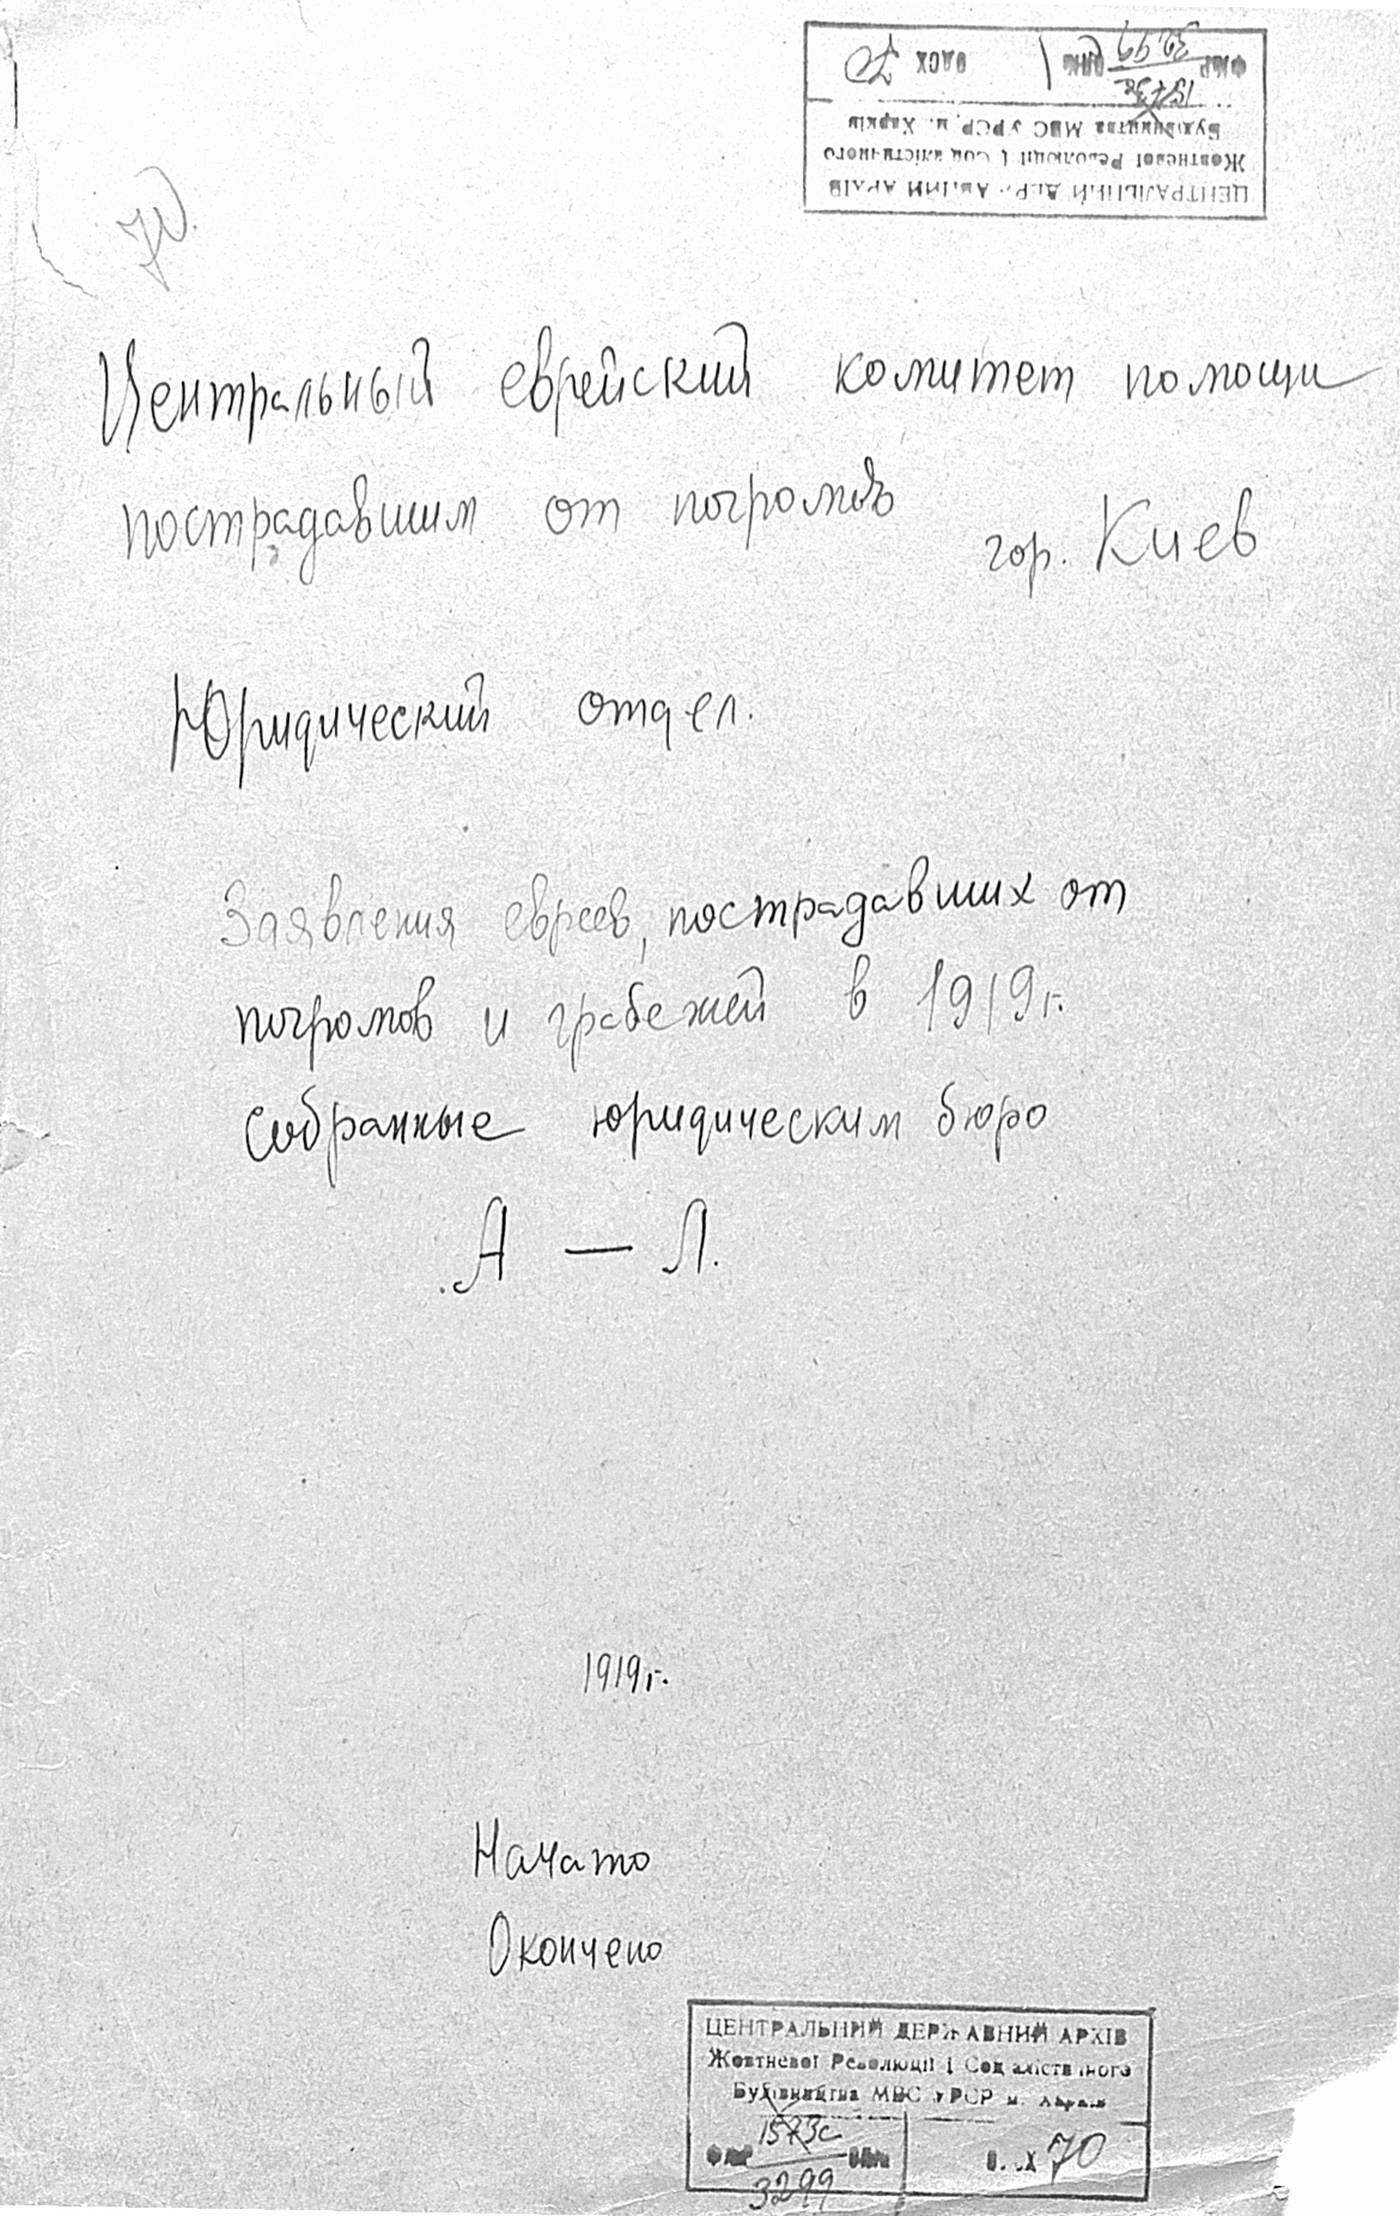 ЦЕНТРАЛЬНИЙ ДЕРЖАВНИЙ АРХІВ
Жовтневої Революції і Соціалістичного
Будівництва МВС УРСР м. Харків
1573с
3299 70
70
Центральный еврейский комитет помощи
пострадавшим от погромов
гор. Киев
Юридический отдел.
Заявления евреев, пострадавших от
погромов и грабежей в 1919г.
собранные юридическим бюро
А — Л.
1919г.
Начато
Окончено
ЦЕНТРАЛЬНИЙ ДЕРЖАВНИЙ АРХІВ
Жовтневої Революції і Соціалістичного
Будівництва МВС УРСР м. Харків
1573с
3299 70